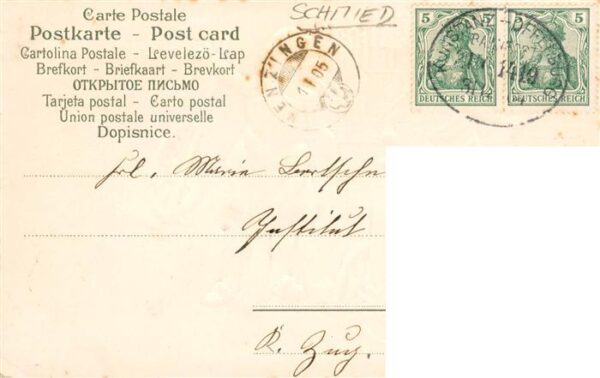 Carte Postale
Postkarte - Post card
Cartolina Postale - Levelezö-Lap
Brefkort - Briefkaart - Brevkort
ОТКРЫТОЕ ПИСЬМО
Tarjeta postal - Carto postal
Union postale universelle
Dopisnice.
SCHMIED
MENZINGEN
1 05
5 5 5
DEUTSCHES REICH DEUTSCHES REICH
KONSTANZ - OFFENBURG
BAHNPOST
Frl. Marie
Institut
K. Zug.